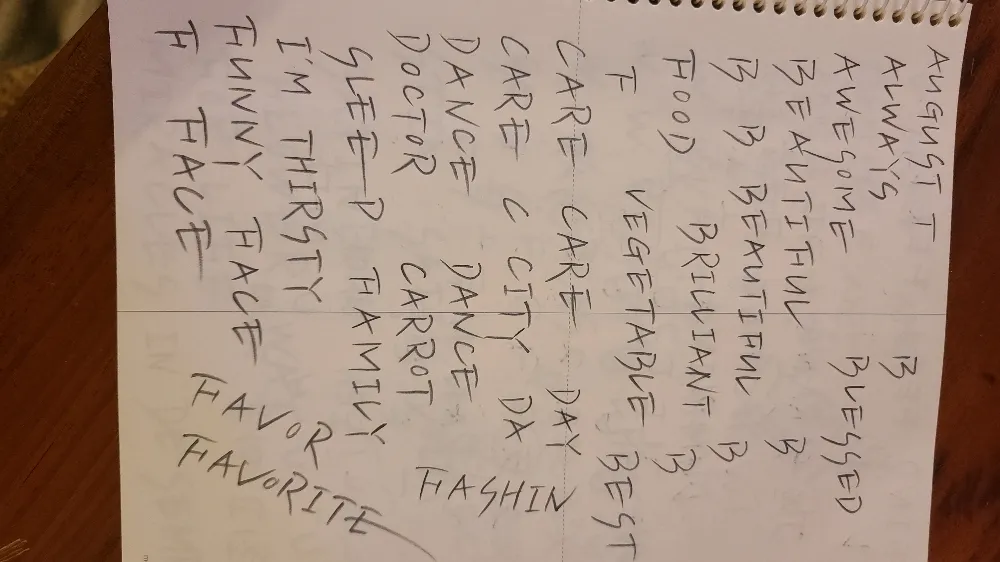 AUGUST T
ALWAYS B
AWESOME BLESSED
BEAUTIFUL B
B B BEAUTIFUL B
FOOD BRILLIANT B
F VEGETABLE BEST
CARE CARE DAY
CARE C CITY DA
DANCE DANCE FASHIN
DOCTOR CARROT
SLEEP FAMILY
I'M THIRSTY
FUNNY FACE FAVOR
F FACE FAVORITE